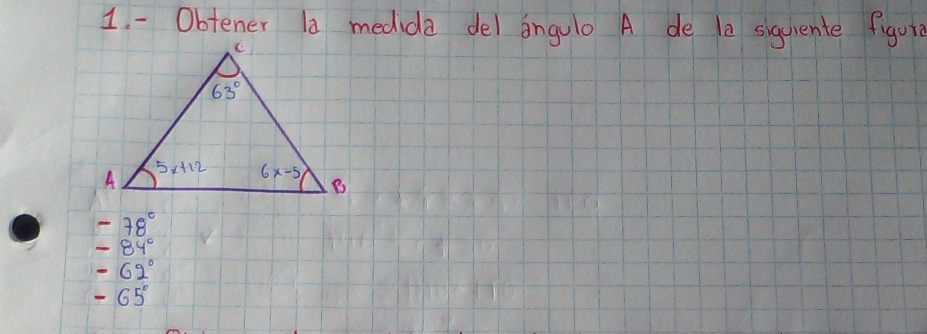 1.- Obtener la medida del ángulo A de la siguiente figura
C
63°
A 5x+12 6x-5 B
- 78°
- 84°
- 62°
- 65°